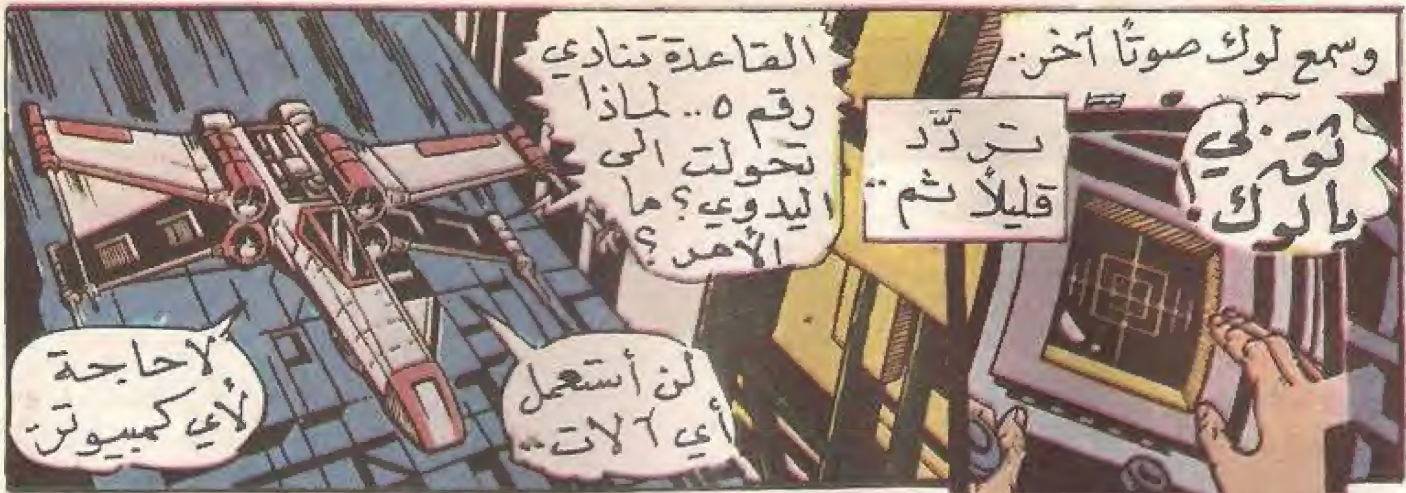 وسمع لوك صوتًا آخر..
ثق بي
يا لوك!
تردَّد
قليلاً ثم..
القاعدة تنادي
رقم ٥.. لماذا
تحولت الى
اليدوي؟ ما
الأمر؟
لن أستعمل
أي آلات..
لا حاجة
لأي كمبيوتر.